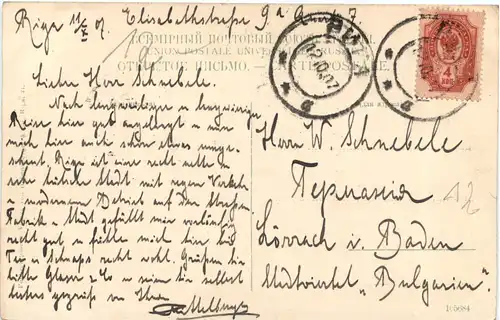 Riga 11/X 07. Elisabethstrasse 9a Quart 7
ВСЕМІРНЫЙ ПОЧТОВЫЙ
UNION POSTALE UNIVERSELLE RUSSIE
ОТКРЫТОЕ ПИСЬМО. CARTE POSTALE
РИГА
12.10.07
4
Lieber Herr Schnebele.
Nach langwieriger u
Reise hier gut angelangt u nun
mich hier auch schon etwas umge-
schaut. Riga ist eine recht nette u
sehr hübsche Stadt mit regem Verkehr
u modernem Betrieb auf den Strassen.
Fabrik u Stadt gefällt mir
recht gut u fühle mich hier bei
Tee u Schnaps recht wohl. Grüßen Sie
bitte Glaser u seien Sie selbst
bestens gegrüßt von Ihrem
Herrn W. Schnebele
Германія
Lörrach i. Baden
"Bulgarien"
12